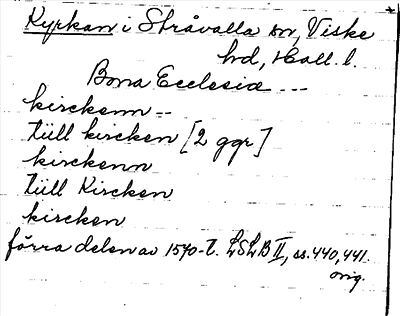 Kyrkan i Stråvalla sn, Viske
hd, Hall. l.
Bona Ecclesiæ ---
kirckenn --
tüll kircken [2 ggr]
kirckenn
tüll Kircken
kircken
förra delen av 1570-t. LSLB II, ss. 440, 441.
orig.